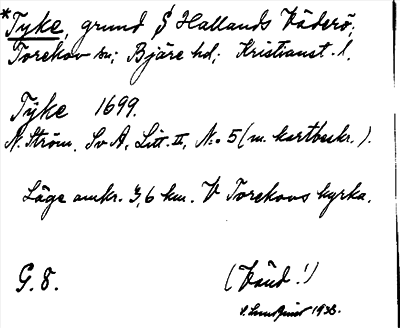 *Tyke, grund § Hallands Väderö;
Torekov sn; Bjäre hd; Kristianst. l.
Tÿke 1699.
N. Ström. Sv A, Litt. II, No 5 (m. kartbeskr.).
Läge omkr. 3,6 km. V Torekovs kyrka.
G. 8.
(Vänd!)
1938.